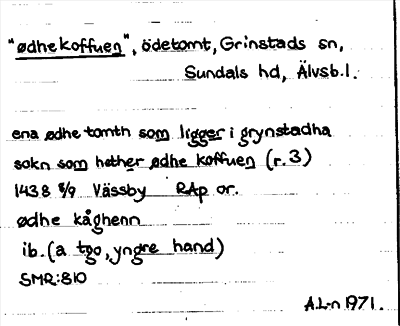 "ødhe koffuen", ödetomt, Grinstads sn,
Sundals hd, Älvsb.l.
ena ødhe tomth som ligger i grynstadha
sokn som hether ødhe koffuen (r.3)
1438 8/9 Vässby RAp or.
ødhe kåghenn
ib. (a tgo, yngre hand)
SMR:810
A.L-n 1971.